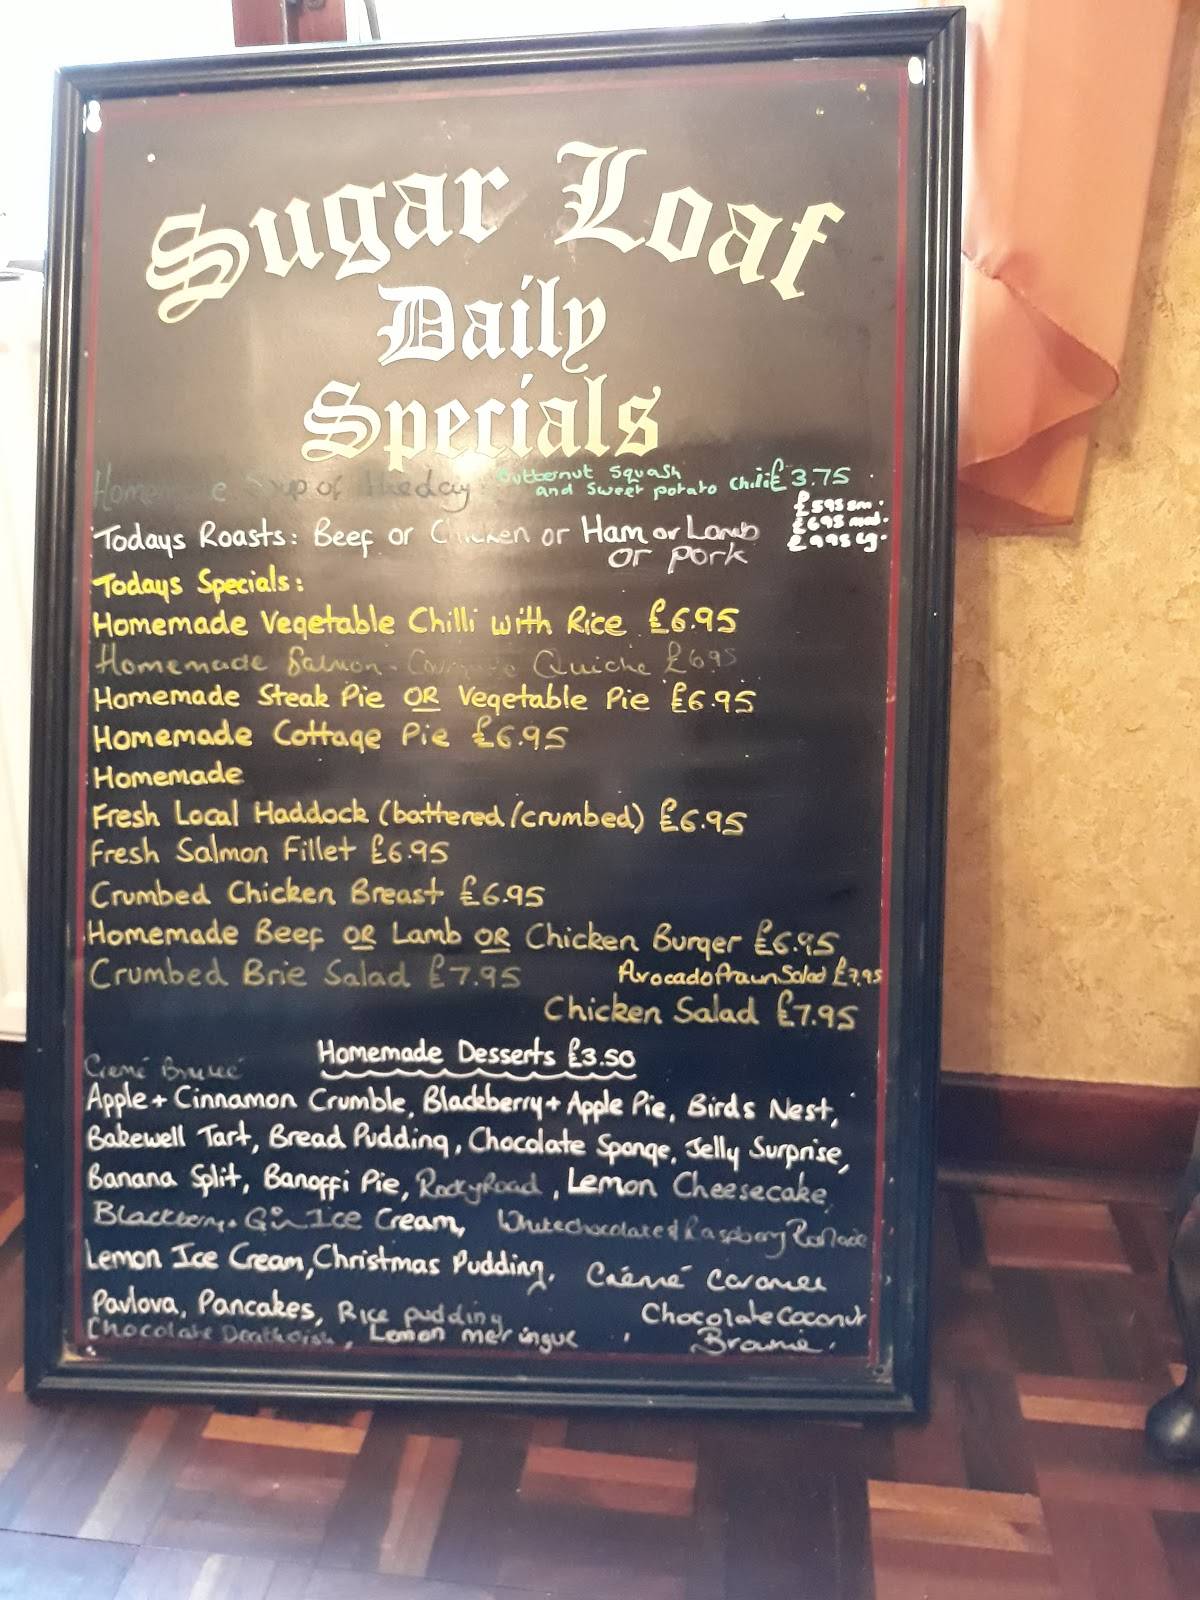 Sugar Loaf
Daily
Specials
Homemade Soup of the day Butternut Squash and Sweet potato Chilli £3.75
Todays Roasts: Beef or Chicken or Ham or Lamb or Pork £5.95 sm. £6.95 med. £9.95 lg.
Todays Specials:
Homemade Vegetable Chilli with Rice £6.95
Homemade Salmon Quiche £6.95
Homemade Steak Pie OR Vegetable Pie £6.95
Homemade Cottage Pie £6.95
Homemade
Fresh Local Haddock (battered/crumbed) £6.95
Fresh Salmon Fillet £6.95
Crumbed Chicken Breast £6.95
Homemade Beef OR Lamb OR Chicken Burger £6.95
Crumbed Brie Salad £7.95 Avocado Prawn Salad £7.95
Chicken Salad £7.95
Homemade Desserts £3.50
Apple + Cinnamon Crumble, Blackberry + Apple Pie, Birds Nest,
Bakewell Tart, Bread Pudding, Chocolate Sponge, Jelly Surprise,
Banana Split, Banoffi Pie, Rocky Road, Lemon Cheesecake,
Gin Ice Cream, White chocolate & Raspberry
Lemon Ice Cream, Christmas Pudding, Crémé Caramel
Pavlova, Pancakes, Rice pudding Chocolate Coconut
Chocolate Lemon meringue, Brownie.